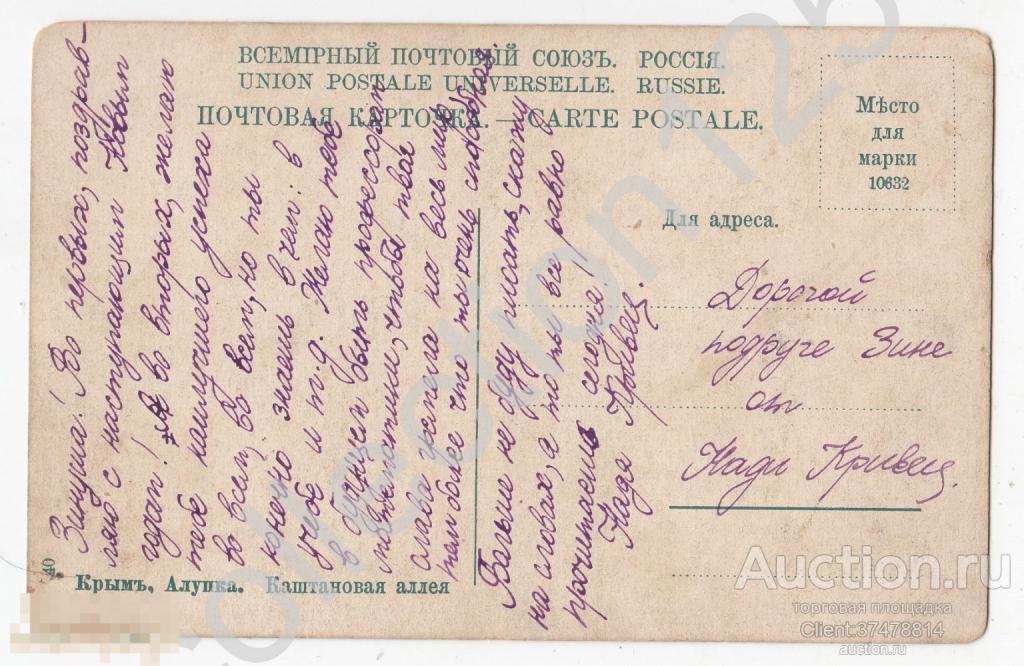 ВСЕМІРНЫЙ ПОЧТОВЫЙ СОЮЗЪ. РОССІЯ.
UNION POSTALE UNIVERSELLE. RUSSIE.
ПОЧТОВАЯ КАРТОЧКА. — CARTE POSTALE.
Мѣсто
для
марки
10632
Для адреса.
Дорогой
подруге Зине
от
Нади Кривец.
Зинуша! Во первых, поздрав-
ляю с наступающим Новым
годом! во вторых, желаю
тебе наилучшего успеха
во всем, во всем, но ты
конечно знаешь в чем: в
учебе и т.д. Желаю тебе
в будущем быть профессором
математики, чтобы твоя
слава успела на весь мир
тем более что ты очень
Больше не буду писать, скажу
на словах, а то ты все равно
прочитаешь сегодня.
Надя Кривец.
40
Крымъ, Алупка. Каштановая аллея
Auction.ru
торговая площадка
Client:37478814
auction.ru